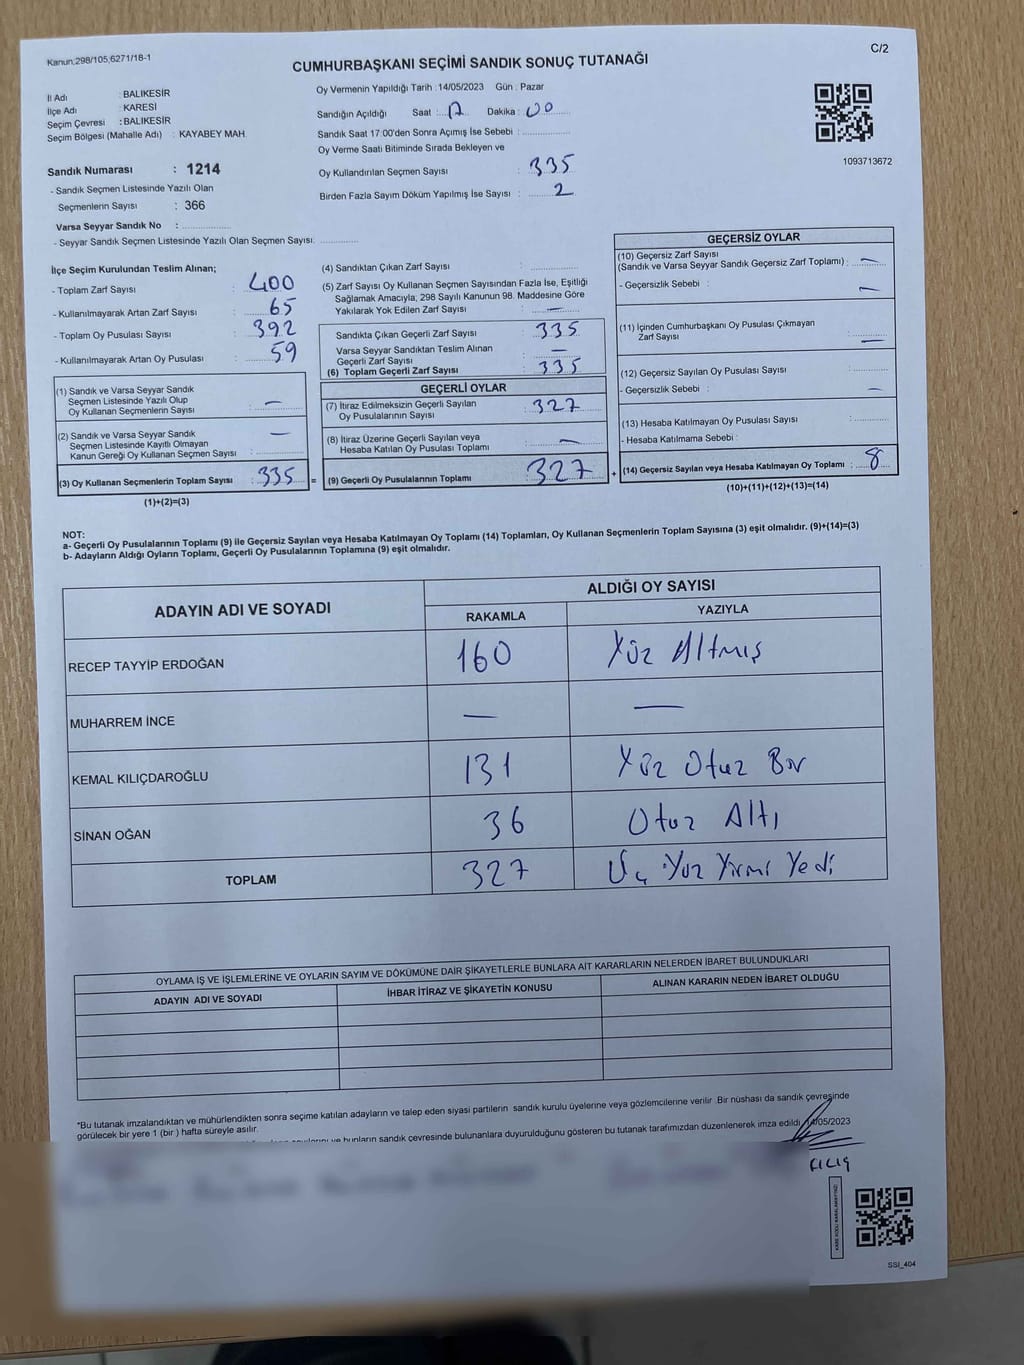 Kanun;298/105;6271/18-1
C/2
CUMHURBAŞKANI SEÇİMİ SANDIK SONUÇ TUTANAĞI
İl Adı : BALIKESİR
İlçe Adı : KARESİ
Seçim Çevresi : BALIKESİR
Seçim Bölgesi (Mahalle Adı) : KAYABEY MAH.
Sandık Numarası : 1214
- Sandık Seçmen Listesinde Yazılı Olan
Seçmenlerin Sayısı : 366
Varsa Seyyar Sandık No :
- Seyyar Sandık Seçmen Listesinde Yazılı Olan Seçmen Sayısı:
Oy Vermenin Yapıldığı Tarih : 14/05/2023 Gün : Pazar
Sandığın Açıldığı Saat : 17 Dakika : 00
Sandık Saat 17:00'den Sonra Açımış İse Sebebi :
Oy Verme Saati Bitiminde Sırada Bekleyen ve
Oy Kullandırılan Seçmen Sayısı : 335
Birden Fazla Sayım Döküm Yapılmış İse Sayısı : 2
1093713672
İlçe Seçim Kurulundan Teslim Alınan;
- Toplam Zarf Sayısı : 400
- Kullanılmayarak Artan Zarf Sayısı : 65
- Toplam Oy Pusulası Sayısı : 392
- Kullanılmayarak Artan Oy Pusulası : 59
(1) Sandık ve Varsa Seyyar Sandık
Seçmen Listesinde Yazılı Olup
Oy Kullanan Seçmenlerin Sayısı : —
(2) Sandık ve Varsa Seyyar Sandık
Seçmen Listesinde Kayıtlı Olmayan
Kanun Gereği Oy Kullanan Seçmen Sayısı : —
(3) Oy Kullanan Seçmenlerin Toplam Sayısı : 335 =
(1)+(2)=(3)
(4) Sandıktan Çıkan Zarf Sayısı :
(5) Zarf Sayısı Oy Kullanan Seçmen Sayısından Fazla İse, Eşitliği
Sağlamak Amacıyla; 298 Sayılı Kanunun 98. Maddesine Göre
Yakılarak Yok Edilen Zarf Sayısı : —
Sandıkta Çıkan Geçerli Zarf Sayısı : 335
Varsa Seyyar Sandıktan Teslim Alınan
Geçerli Zarf Sayısı : —
(6) Toplam Geçerli Zarf Sayısı : 335
GEÇERLİ OYLAR
(7) İtiraz Edilmeksizin Geçerli Sayılan
Oy Pusulalarının Sayısı : 327
(8) İtiraz Üzerine Geçerli Sayılan veya
Hesaba Katılan Oy Pusulası Toplamı : —
(9) Geçerli Oy Pusulalarının Toplamı : 327 +
GEÇERSİZ OYLAR
(10) Geçersiz Zarf Sayısı
(Sandık ve Varsa Seyyar Sandık Geçersiz Zarf Toplamı) : —
- Geçersizlik Sebebi : —
(11) İçinden Cumhurbaşkanı Oy Pusulası Çıkmayan
Zarf Sayısı : —
(12) Geçersiz Sayılan Oy Pusulası Sayısı :
- Geçersizlik Sebebi : —
(13) Hesaba Katılmayan Oy Pusulası Sayısı :
- Hesaba Katılmama Sebebi :
(14) Geçersiz Sayılan veya Hesaba Katılmayan Oy Toplamı : 8
(10)+(11)+(12)+(13)=(14)
NOT:
a- Geçerli Oy Pusulalarının Toplamı (9) ile Geçersiz Sayılan veya Hesaba Katılmayan Oy Toplamı (14) Toplamları, Oy Kullanan Seçmenlerin Toplam Sayısına (3) eşit olmalıdır. (9)+(14)=(3)
b- Adayların Aldığı Oyların Toplamı, Geçerli Oy Pusulalarının Toplamına (9) eşit olmalıdır.
ADAYIN ADI VE SOYADI
ALDIĞI OY SAYISI
RAKAMLA YAZIYLA
RECEP TAYYİP ERDOĞAN 160 Yüz Altmış
MUHARREM İNCE — —
KEMAL KILIÇDAROĞLU 131 Yüz Otuz Bir
SİNAN OĞAN 36 Otuz Altı
TOPLAM 327 Üç Yüz Yirmi Yedi
OYLAMA İŞ VE İŞLEMLERİNE VE OYLARIN SAYIM VE DÖKÜMÜNE DAİR ŞİKAYETLERLE BUNLARA AİT KARARLARIN NELERDEN İBARET BULUNDUKLARI
ADAYIN ADI VE SOYADI İHBAR İTİRAZ VE ŞİKAYETİN KONUSU ALINAN KARARIN NEDEN İBARET OLDUĞU
*Bu tutanak imzalandıktan ve mühürlendikten sonra seçime katılan adayların ve talep eden siyasi partilerin sandık kurulu üyelerine veya gözlemcilerine verilir Bir nüshası da sandık çevresinde
görülecek bir yere 1 (bir ) hafta süreyle asılır.
bunların sandık çevresinde bulunanlara duyurulduğunu gösteren bu tutanak tarafımızdan düzenlenerek imza edildi. 14/05/2023
SSI_404